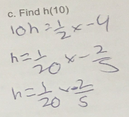 c. Find h(10)
10h = 1/2 x - 4
h = 1/20 x - 2/5
h = 1/20 x - 2/5